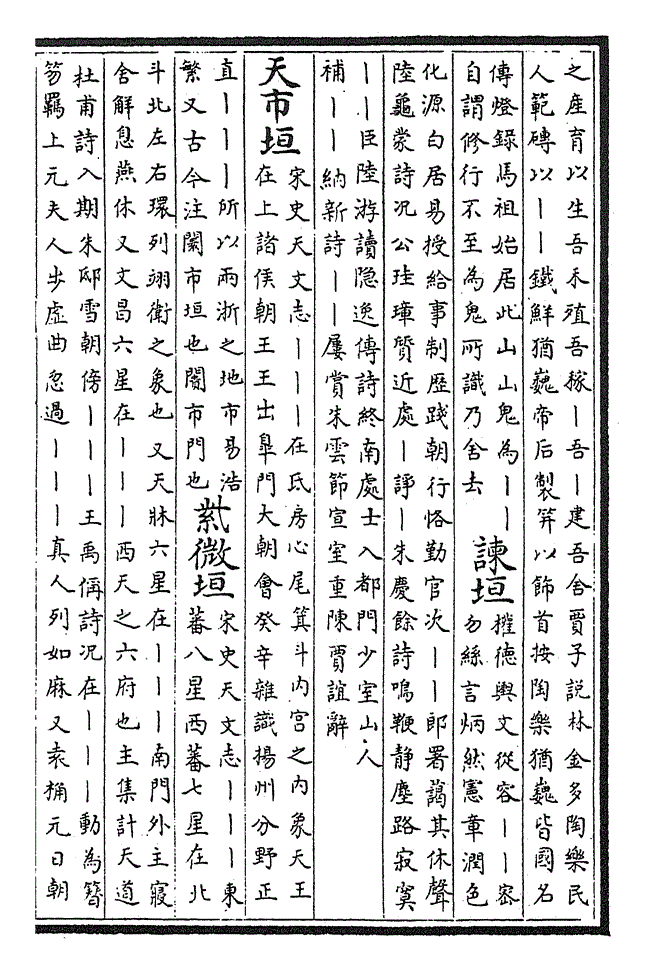 之產育以生吾禾殖吾稼｜吾｜建吾舍賈子說林金多陶樂民
人範磚以｜｜鐵鮮猶巍帝后製笄以飾首按陶樂猶巍皆國名
傳燈錄馬祖始居此山山鬼為｜｜
自謂修行不至為鬼所識乃舍去
諫垣
權德輿文從容｜｜密
勿絲言炳然憲章潤色
化源白居易授給事制歷踐朝行恪勤官次｜｜郎署藹其休聲
陸龜蒙詩況公珪璋贄近處｜諍｜朱慶餘詩鳴鞭静塵路寂寞
｜｜臣陸游讀隐逸傳詩終南處士入都門少室山人
補｜｜納新詩｜｜屢賞朱雲節宣室重陳賈誼辭
天市垣
宋史天文志｜｜｜在氐房心尾箕斗内宫之内象天王
在上諸侯朝王王士臯門大朝會癸辛雜識揚州分野正
直｜｜｜所以兩浙之地市易浩
繁又古今注闤市垣也闠市門也
紫微垣
宋史天文志｜｜｜東
蕃八星西蕃七星在北
斗北左右環列翊衛之象也又天牀六星在｜｜｜南門外主寢
舍解息燕休又文昌六星在｜｜｜西天之六府也主集計天道
杜甫詩入期朱邸雪朝傍｜｜｜王禹偁詩況在｜｜｜動為簪
笏羈上元夫人步虛曲忽過｜｜｜真人列如麻又袁桷元日朝